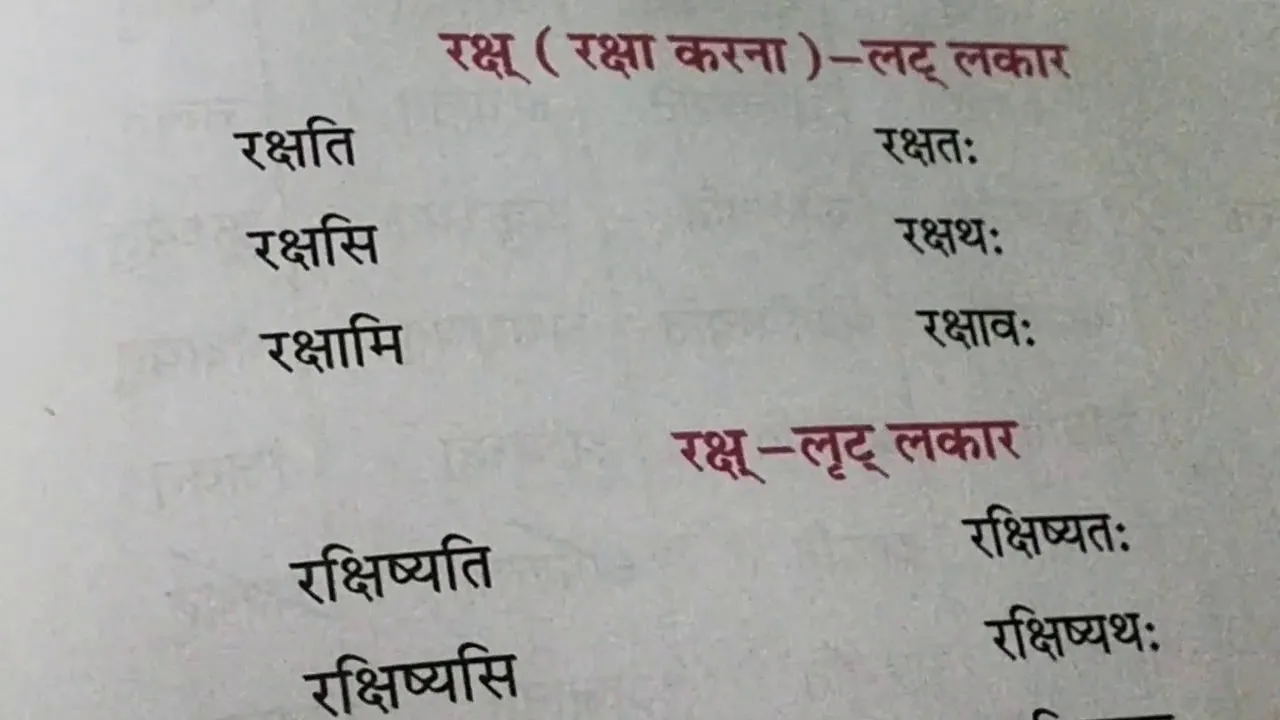 रक्ष् ( रक्षा करना )–लट् लकार
रक्षति रक्षतः
रक्षसि रक्षथः
रक्षामि रक्षावः
रक्ष्–लृट् लकार
रक्षिष्यति रक्षिष्यतः
रक्षिष्यसि रक्षिष्यथः